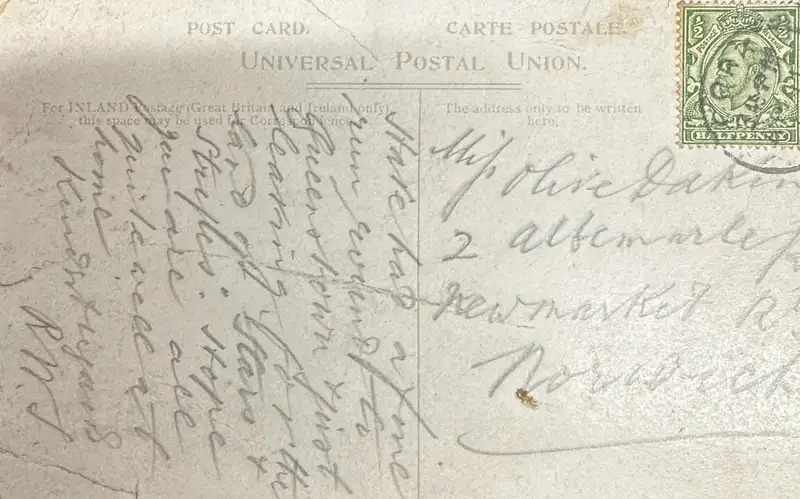 POST CARD. CARTE POSTALE.
UNIVERSAL POSTAL UNION.
For INLAND Postage (Great Britain and Ireland only)
this space may be used for Correspondence.
The address only to be written
here.
Have had a fine
run round to
Queenstown & just
leaving for the
land of stars &
stripes. Hope
you are all
quite well at
home
Kindest regards
R.W.S
Miss Olive Dakin
2 Albemarle
Newmarket R
Norwich
½ ½
POSTAGE REVENUE
HALFPENNY